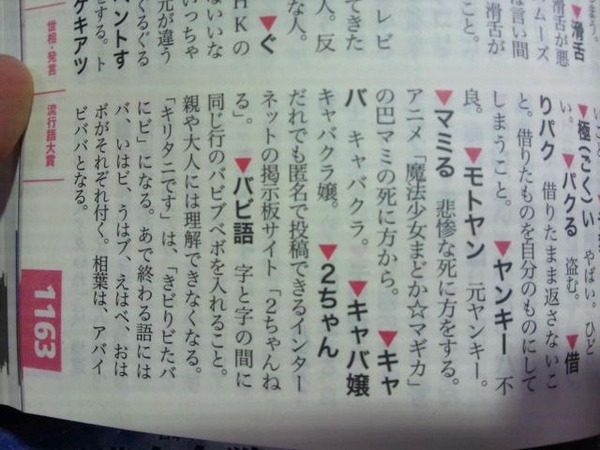 ▼滑舌
滑舌が悪
ムーズ
は言い間
滑舌が
こと。
レビ
てきた
人。反
な人。
▼ぐ
HKの
ないいな
いっちゃ
元が違う
ぐるぐる
ントす
をする。ト
ケキアツ
▼極(ごく)い やばい。ひど
い。▼パクる 盗む。▼借
りパク 借りたまま返さないこ
と。借りたものを自分のものにして
しまうこと。▼ヤンキー 不
良。▼モトヤン 元ヤンキー。
▼マミる 悲惨な死に方をする。
アニメ「魔法少女まどか☆マギカ」
の巴マミの死に方から。▼キャ
バ キャバクラ。▼キャバ嬢
キャバクラ嬢。▼2ちゃん
だれでも匿名で投稿できるインター
ネットの掲示板サイト「2ちゃんね
る」。▼バビ語 字と字の間に
同じ行のバビブベボを入れること。
親や大人には理解できなくなる。
「キリタニです」は、「きビりビたバ
にビ」になる。あで終わる語には
バ、いはビ、うはブ、えはベ、おは
ボがそれぞれ付く。相葉は、アバイ
ビババとなる。
世相・発言
流行語大賞
1163